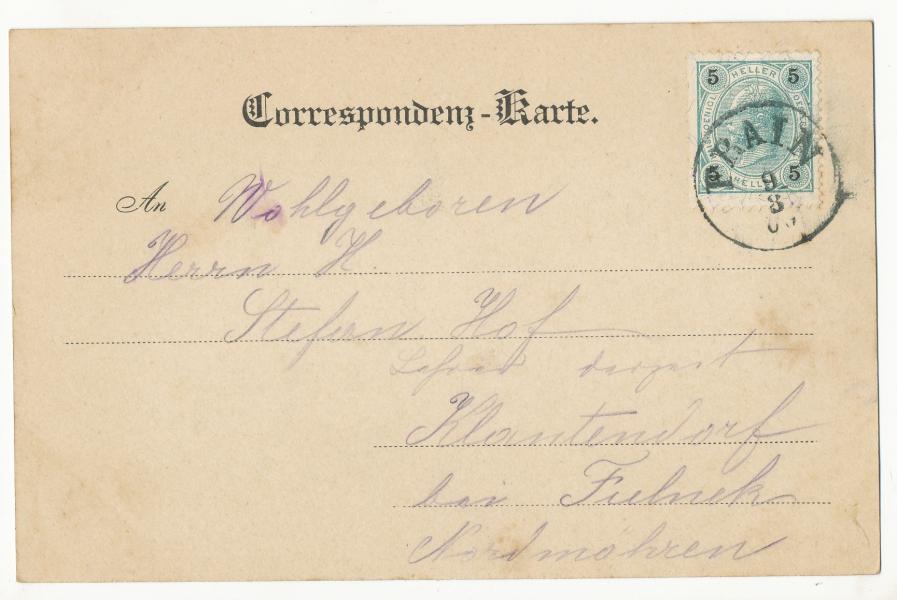 Correspondenz-Karte.
5 HELLER 5
5 HELLER 5
FRAIN
9
8
An Wohlgeboren
Herrn H
Stefan Hof
derzeit
Klantendorf
bei Fulnek
Nordmähren